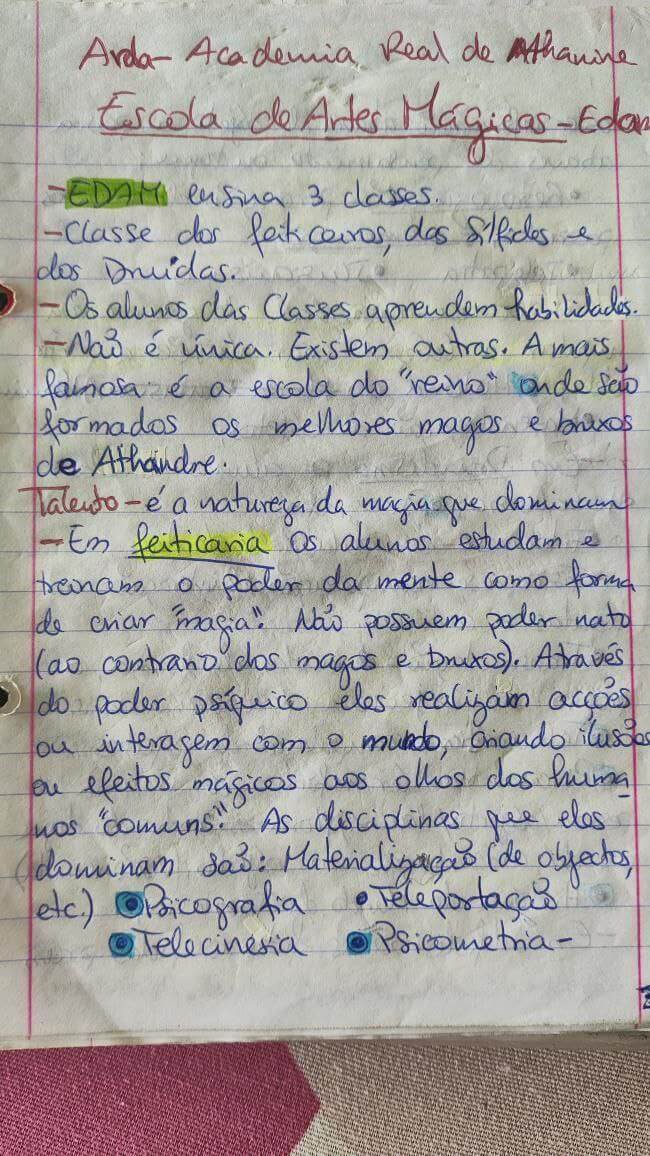 Arda- Academia Real de Athanine
Escola de Artes Mágicas - Edam
- EDAM ensina 3 classes.
- Classe dos feiticeiros, das Sílfides e
dos Druidas.
- Os alunos das Classes aprendem habilidades.
- Não é única. Existem outras. A mais
famosa é a escola do "reino" onde são
formados os melhores magos e bruxos
de Athandre.
Talento - é a natureza da magia que dominam
- Em feiticaria os alunos estudam e
treinam o poder da mente como forma
de criar "magia". Não possuem poder nato
(ao contrario dos magos e bruxos). Através
do poder psíquico eles realizam acções
ou interagem com o mundo, criando ilusões
ou efeitos mágicos aos olhos dos huma_
nos "comuns". As disciplinas que eles
dominam são: Materialização (de objectos,
etc.) • Psicografia • Teleportação
• Telecinésia • Psicometria -